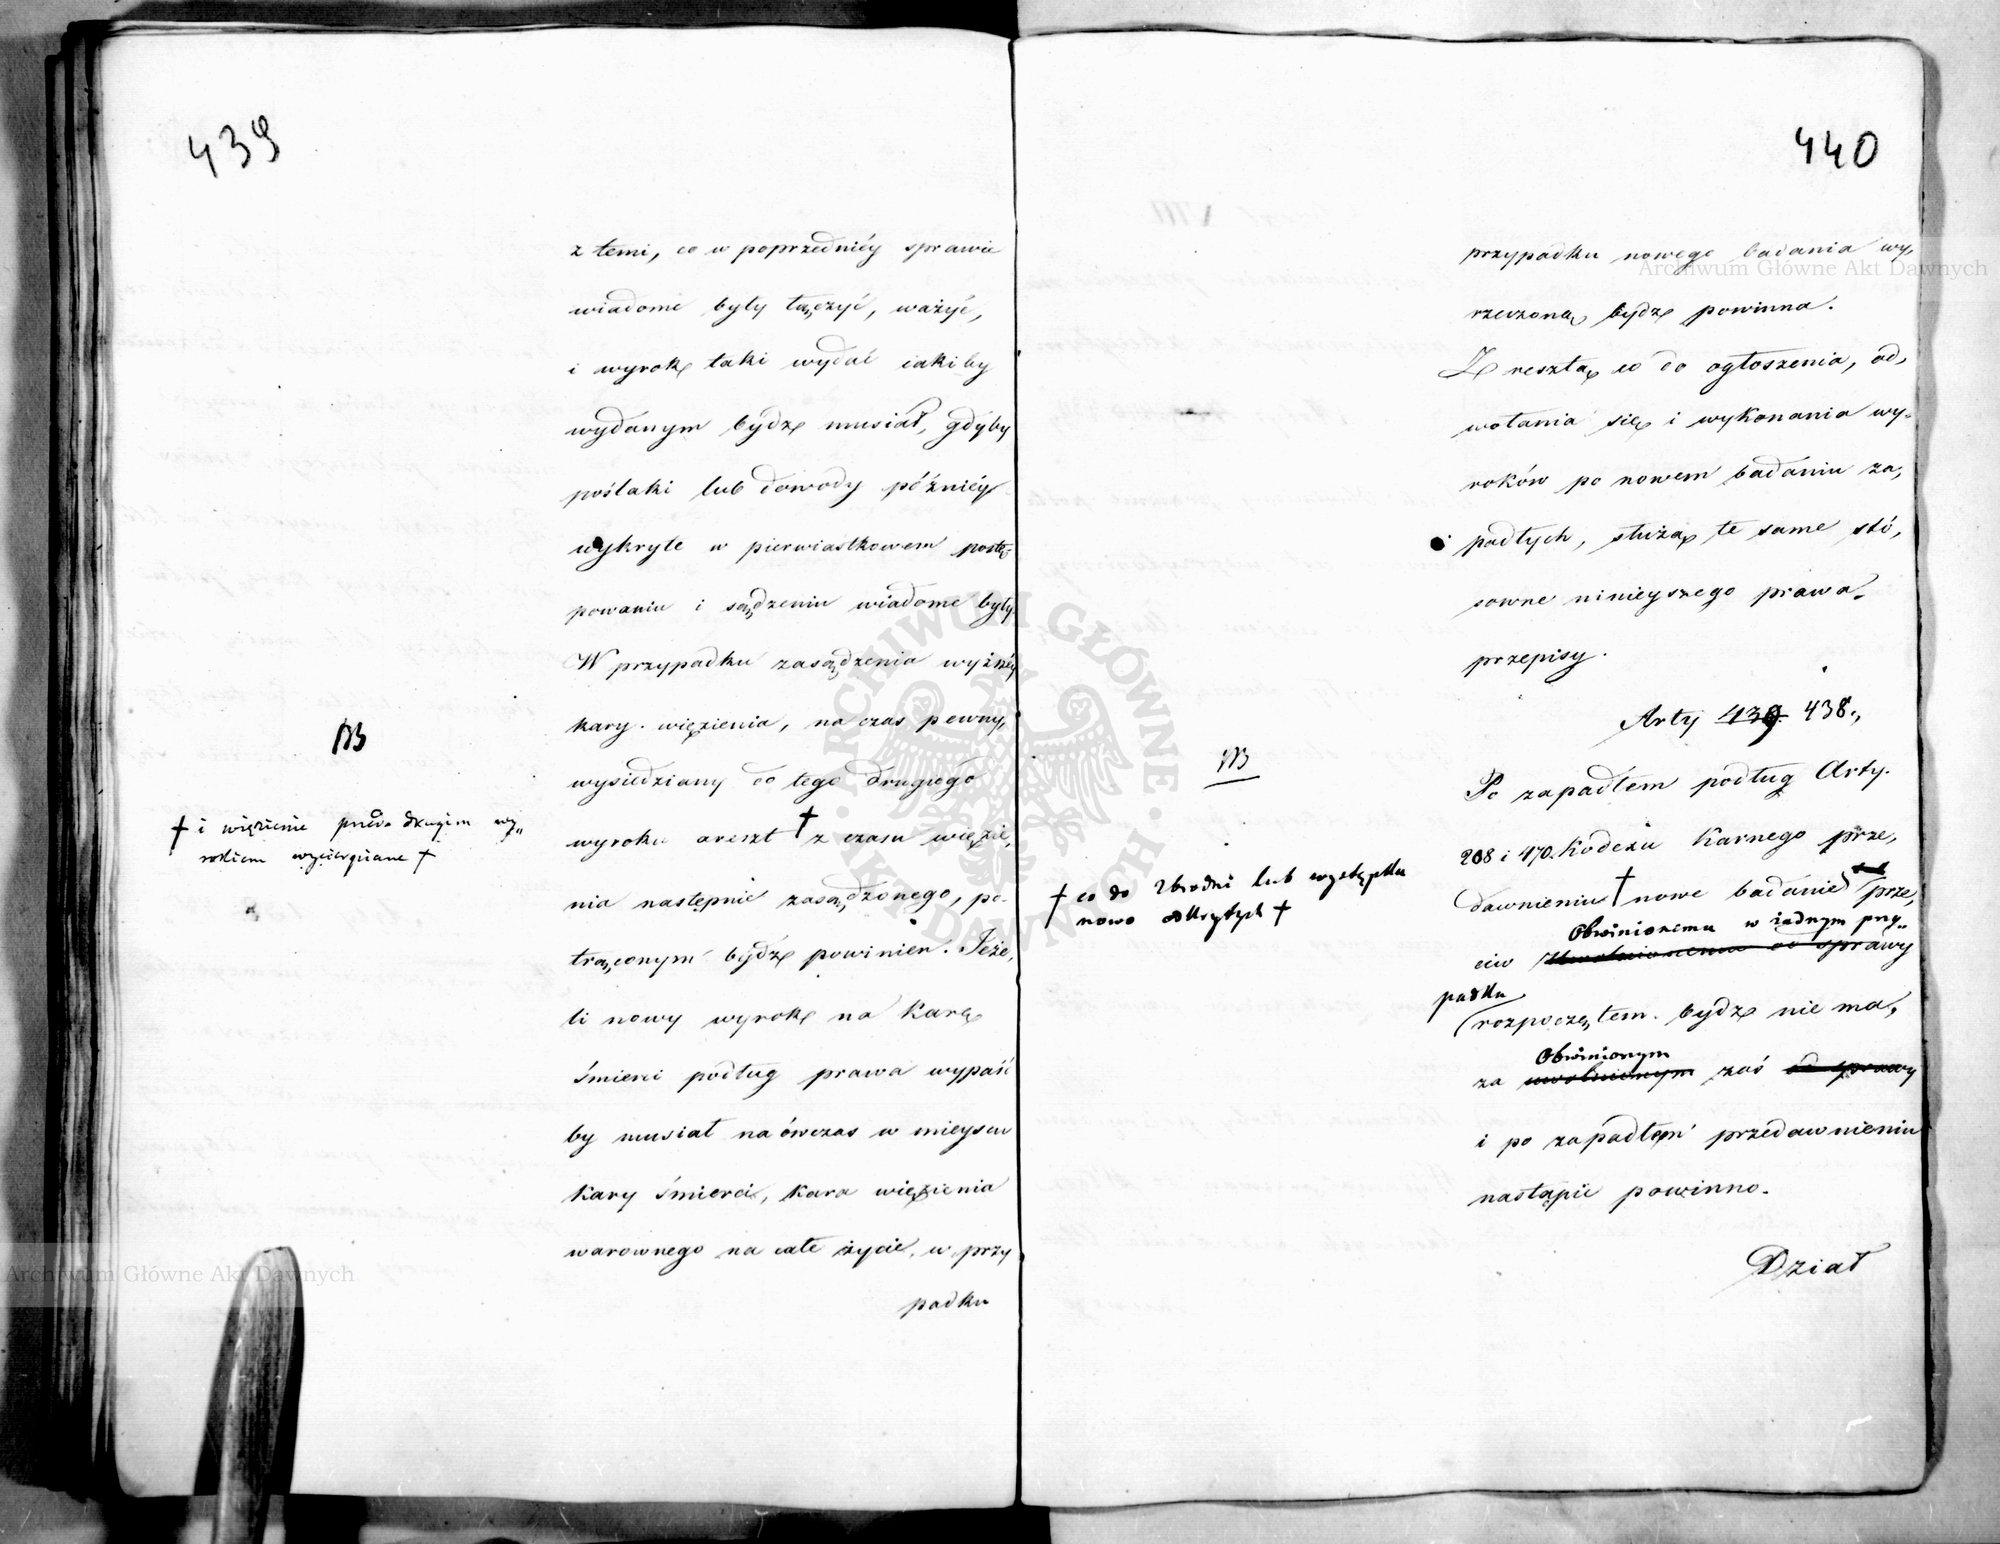 439
z temi, co w poprzedniéy sprawie
wiadome były łączyć, ważyć,
i wyrok taki wydać iakiby
wydanym bydź musiał, gdyby
poślaki lub dowody późniéy
wykryte w pierwiastkowem postę„
powaniu i sądzeniu wiadome były
W przypadku zasądzenia wyższéy
kary więzienia, na czas pewny,
wysiedziany do tego drugiego
wyroku areszt † z czasu więzie„
nia następnie zasądzonego, po-
trąconym bydź powinien. Jeże„
li nowy wyrok na karę
śmierci podług prawa wypaść
by musiał na ówczas w mieyscu
kary śmierci, kara więzienia
warownego na całe życie, w przy
padku
NB
† i więzienie przed drugim wy„
rokiem wycierpiane †
440
przypadku nowego badania wy„
rzeczoną bydź powinna.
Z resztą co do ogłoszenia, od„
wołania się i wykonania wy„
roków po nowem badaniu za„
padłych, służą te same stó„
sowne ninieyszego prawa
przepisy.
Arty 439. 438.,
Po zapadłem podług Arty.
208 i 470. Kodexu Karnego prze„
dawnieniu † nowe badanie prze„
Obwinionemu w żadnym przy„
ciw Uwolnionemu od sprawy
padku
rozpoczętem bydź nie ma,
Obwinionym
za uwolnionym zaś od sprawy
i po zapadłem przedawnieniu
nastąpić powinno.
Dział
NB
† co do zbrodni lub występku
nowo odkrytych †
Archiwum Główne Akt Dawnych
Archiwum Główne Akt Dawnych
ARCHIWUM GŁÓWNE AKT DAWNYCH